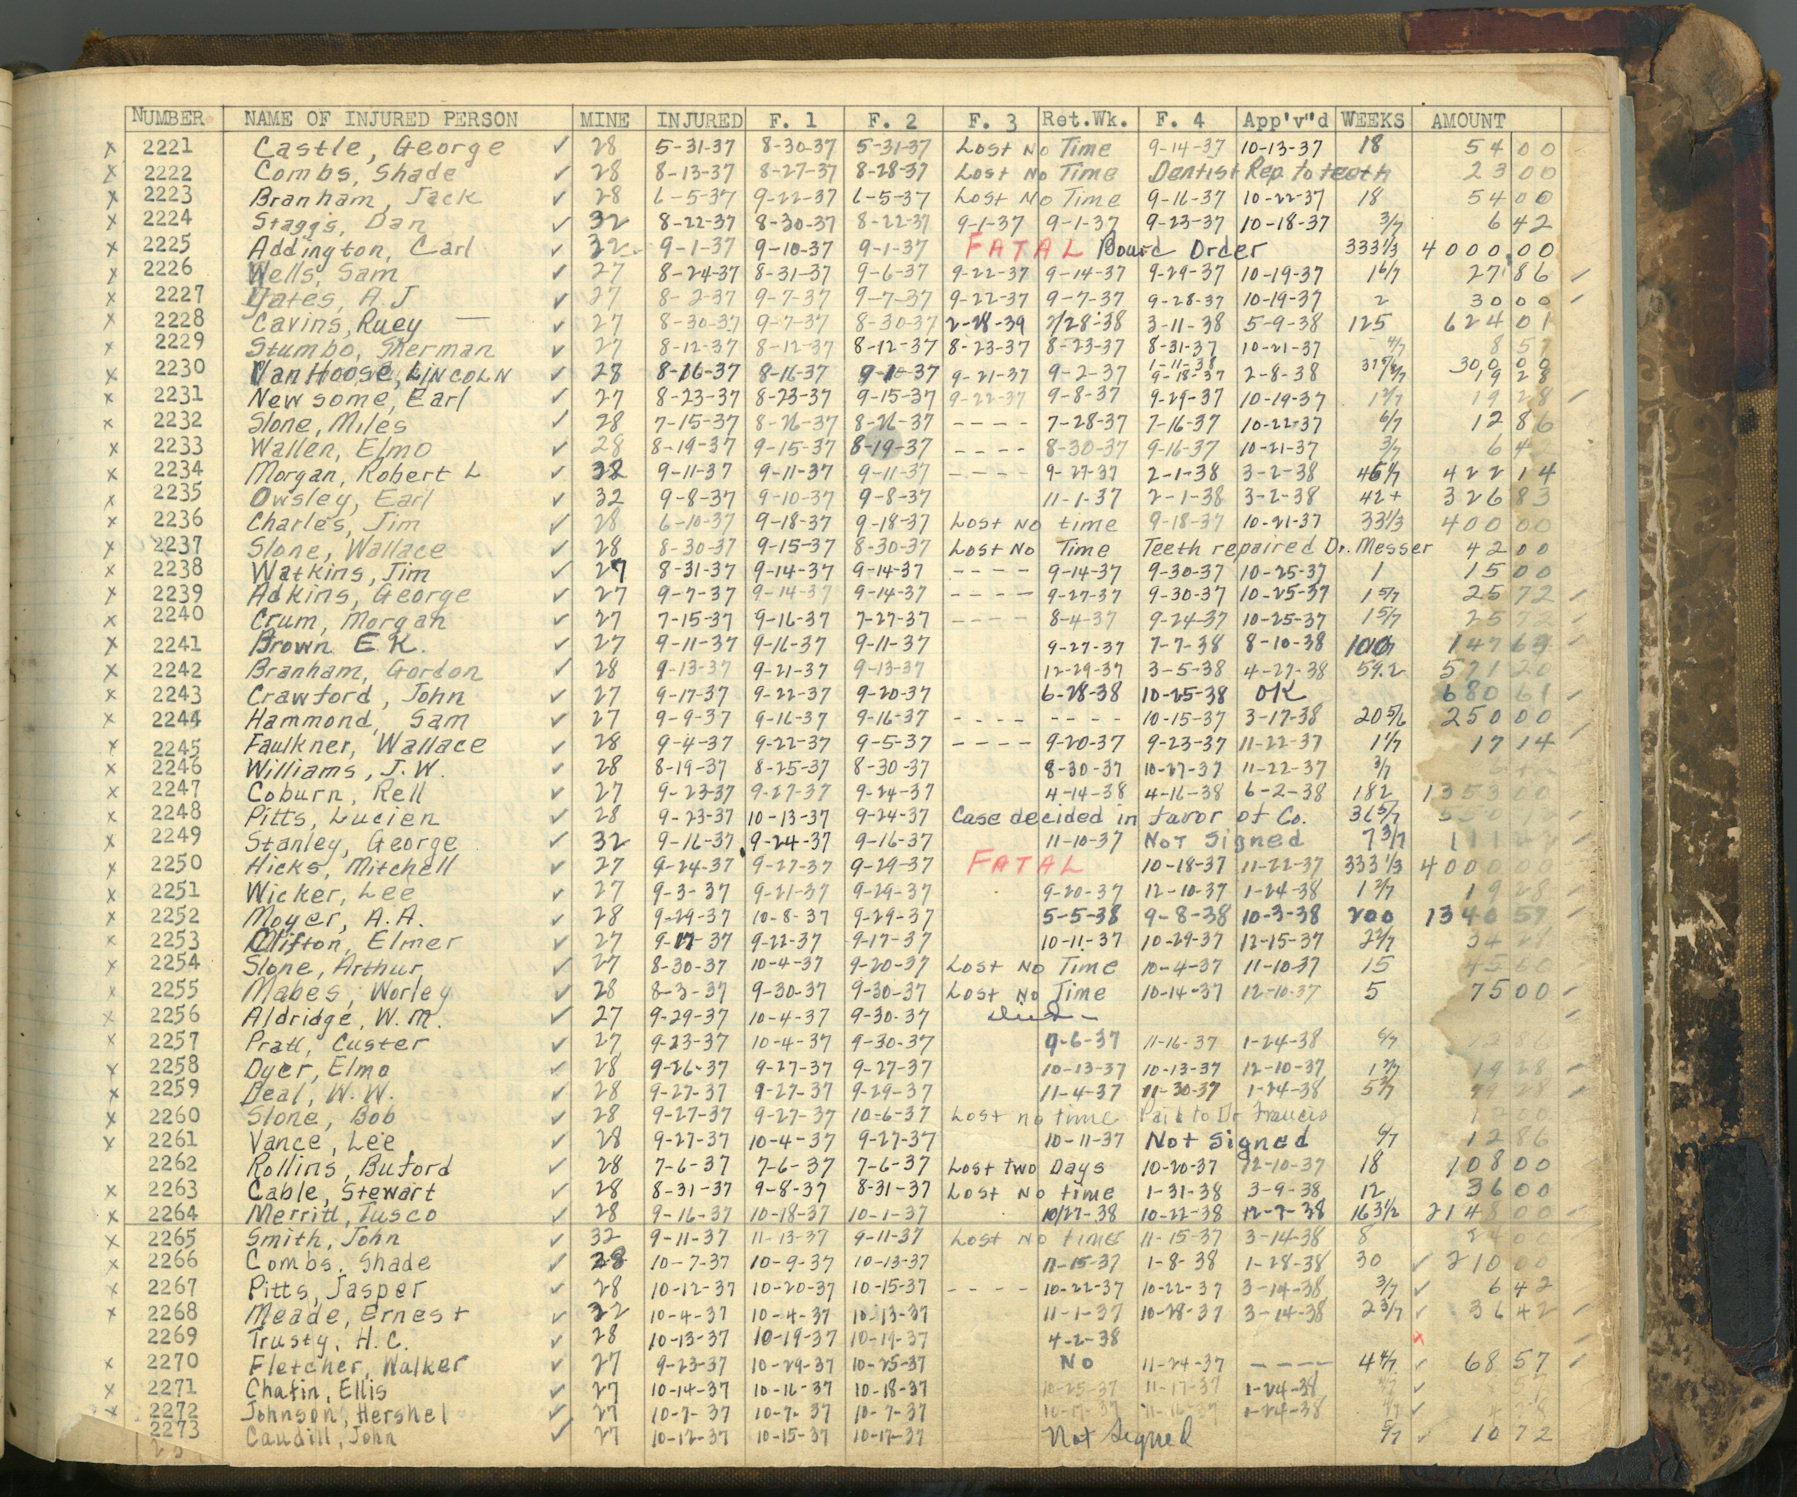 NUMBER NAME OF INJURED PERSON MINE INJURED F. 1 F. 2 F. 3 Ret.Wk. F. 4 App'v"d WEEKS AMOUNT
x 2221 Castle, George ✓ 28 5-31-37 8-30-37 5-31-37 Lost No Time 9-14-37 10-13-37 18 54 00
x 2222 Combs, Shade ✓ 28 8-13-37 8-27-37 8-28-37 Lost No Time Dentist Rep. to teeth 23 00
x 2223 Branham, Jack ✓ 28 6-5-37 9-22-37 6-5-37 Lost No Time 9-16-37 10-22-37 18 54 00
x 2224 Staggs, Dan ✓ 32 8-22-37 8-30-37 8-22-37 9-1-37 9-1-37 9-23-37 10-18-37 3/7 6 42
x 2225 Addington, Carl ✓ 32 9-1-37 9-10-37 9-1-37 FATAL Board Order 333 1/3 4000 00
x 2226 Wells, Sam ✓ 27 8-24-37 8-31-37 9-6-37 9-22-37 9-14-37 9-29-37 10-19-37 1 6/7 27 86 ✓
x 2227 Yates, A. J ✓ 27 8-2-37 9-7-37 9-7-37 9-22-37 9-7-37 9-28-37 10-19-37 2 30 00 ✓
x 2228 Cavins, Ruey — ✓ 27 8-30-37 9-7-37 8-30-37 2-28-39 2/28-38 3-11-38 5-9-38 125 624 01
x 2229 Stumbo, Sherman ✓ 27 8-12-37 8-12-37 8-12-37 8-23-37 8-23-37 8-31-37 10-21-37 4/7 8 57
x 2230 VanHoose, LINCOLN ✓ 28 8-16-37 8-16-37 9-1-37 9-21-37 9-2-37 1-11-38 9-18-37 2-8-38 300 00 19 28
x 2231 Newsome, Earl ✓ 27 8-23-37 8-23-37 9-15-37 9-22-37 9-8-37 9-29-37 10-19-37 1 2/7 19 28 ✓
x 2232 Slone, Miles ✓ 28 7-15-37 8-26-37 8-26-37 - - - - 7-28-37 7-16-37 10-22-37 6/7 12 86
x 2233 Wallen, Elmo ✓ 28 8-19-37 9-15-37 8-19-37 - - - - 8-30-37 9-16-37 10-21-37 3/7 6 42
x 2234 Morgan, Robert L ✓ 32 9-11-37 9-11-37 9-11-37 - - - - 9-27-37 2-1-38 3-2-38 422 14
x 2235 Owsley, Earl ✓ 32 9-8-37 9-10-37 9-8-37 11-1-37 2-1-38 3-2-38 42+ 326 83
x 2236 Charles, Jim ✓ 28 6-10-37 9-18-37 9-18-37 Lost No time 9-18-37 10-21-37 33 1/3 400 00
x 2237 Slone, Wallace ✓ 28 8-30-37 9-15-37 8-30-37 Lost No Time Teeth repaired Dr. Messer 42 00
x 2238 Watkins, Jim ✓ 27 8-31-37 9-14-37 9-14-37 - - - - 9-14-37 9-30-37 10-25-37 1 15 00
x 2239 Adkins, George ✓ 27 9-7-37 9-14-37 9-14-37 - - - - 9-27-37 9-30-37 10-25-37 1 5/7 25 72 ✓
x 2240 Crum, Morgan ✓ 27 7-15-37 9-16-37 7-27-37 - - - - 8-4-37 9-24-37 10-25-37 1 5/7 25 72 ✓
x 2241 Brown E.K. ✓ 27 9-11-37 9-16-37 9-11-37 9-27-37 7-7-38 8-10-38 147 63 ✓
x 2242 Branham, Gordon ✓ 28 9-13-37 9-21-37 9-13-37 12-29-37 3-5-38 4-27-38 59.2 571 20
x 2243 Crawford, John ✓ 27 9-17-37 9-22-37 9-20-37 6-28-38 10-25-38 OK 680 61 ✓
x 2244 Hammond, Sam ✓ 27 9-9-37 9-16-37 9-16-37 - - - - - - - - 10-15-37 3-17-38 20 5/6 250 00
x 2245 Faulkner, Wallace ✓ 28 9-4-37 9-22-37 9-5-37 - - - - 9-20-37 9-23-37 11-22-37 1 1/7 17 14 ✓
x 2246 Williams, J. W. ✓ 28 8-19-37 8-25-37 8-30-37 8-30-37 10-27-37 11-22-37 3/7
x 2247 Coburn, Rell ✓ 27 9-23-37 9-27-37 9-24-37 4-14-38 4-16-38 6-2-38 182 1353 00
x 2248 Pitts, Lucien ✓ 28 9-23-37 10-13-37 9-24-37 Case decided in favor of Co. 36 5/7
x 2249 Stanley, George ✓ 32 9-16-37 9-24-37 9-16-37 11-10-37 Not Signed 7 3/7 ✓
x 2250 Hicks, Mitchell ✓ 27 9-24-37 9-27-37 9-29-37 FATAL 10-18-37 11-22-37 333 1/3 4000 00
x 2251 Wicker, Lee ✓ 27 9-3-37 9-21-37 9-29-37 9-20-37 12-10-37 1-24-38 1 2/7 19 28 ✓
x 2252 Moyer, A. A. ✓ 28 9-29-37 10-8-37 9-29-37 5-5-38 9-8-38 10-3-38 200 1340 57 ✓
x 2253 Clifton, Elmer ✓ 27 9-17-37 9-22-37 9-17-37 10-11-37 10-29-37 12-15-37 2 2/7 34 28 ✓
x 2254 Slone, Arthur ✓ 27 8-30-37 10-4-37 9-20-37 Lost No Time 10-4-37 11-10-37 15 45 00
x 2255 Mabes, Worley ✓ 28 8-3-37 9-30-37 9-30-37 Lost No Time 10-14-37 12-10-37 5 75 00 ✓
x 2256 Aldridge, W. M. ✓ 27 9-29-37 10-4-37 9-30-37 ✓
x 2257 Pratt, Custer ✓ 27 9-23-37 10-4-37 9-30-37 9-6-37 11-16-37 1-24-38 6/7 12 86
x 2258 Dyer, Elmo ✓ 28 9-26-37 9-27-37 9-27-37 10-13-37 10-13-37 12-10-37 1 2/7 19 28 ✓
x 2259 Beal, W. W. ✓ 28 9-27-37 9-27-37 9-29-37 11-4-37 11-30-37 1-24-38 5 2/7 79 28 ✓
x 2260 Slone, Bob ✓ 28 9-27-37 9-27-37 10-6-37 Lost no time Paid to Dr Francis
x 2261 Vance, Lee ✓ 28 9-27-37 10-4-37 9-27-37 10-11-37 Not signed 6/7 12 86
2262 Rollins, Buford ✓ 28 7-6-37 7-6-37 7-6-37 Lost two Days 10-20-37 12-10-37 18 108 00
x 2263 Cable, Stewart ✓ 28 8-31-37 9-8-37 8-31-37 Lost No time 1-31-38 3-9-38 12 36 00
x 2264 Merritt, Tusco ✓ 28 9-16-37 10-18-37 10-1-37 10/27-38 10-22-38 12-7-38 163 1/2 2148 00
x 2265 Smith, John ✓ 32 9-11-37 11-13-37 9-11-37 Lost No time 11-15-37 3-14-38 8 24 00
x 2266 Combs, Shade ✓ 28 10-7-37 10-9-37 10-13-37 11-15-37 1-8-38 1-28-38 30 ✓ 210 00
x 2267 Pitts, Jasper ✓ 28 10-12-37 10-20-37 10-15-37 - - - - 10-22-37 10-22-37 3-14-38 3/7 ✓ 6 42
x 2268 Meade, Ernest ✓ 32 10-4-37 10-4-37 10-13-37 11-1-37 10-28-37 3-14-38 2 3/7 ✓ 36 42 ✓
2269 Trusty, H. C. ✓ 28 10-13-37 10-19-37 10-19-37 4-2-38 x ✓
x 2270 Fletcher, Walker ✓ 27 9-23-37 10-29-37 10-25-37 No 11-24-37 - - - - 4 4/7 ✓ 68 57 ✓
x 2271 Chafin, Ellis ✓ 27 10-14-37 10-16-37 10-18-37 10-25-37 11-17-37 1-24-38 ✓
x 2272 Johnson, Hershel ✓ 27 10-7-37 10-7-37 10-7-37 1-24-38 ✓
2273 Caudill, John ✓ 27 10-12-37 10-15-37 10-17-37 Not Signed 5/7 ✓ 10 72